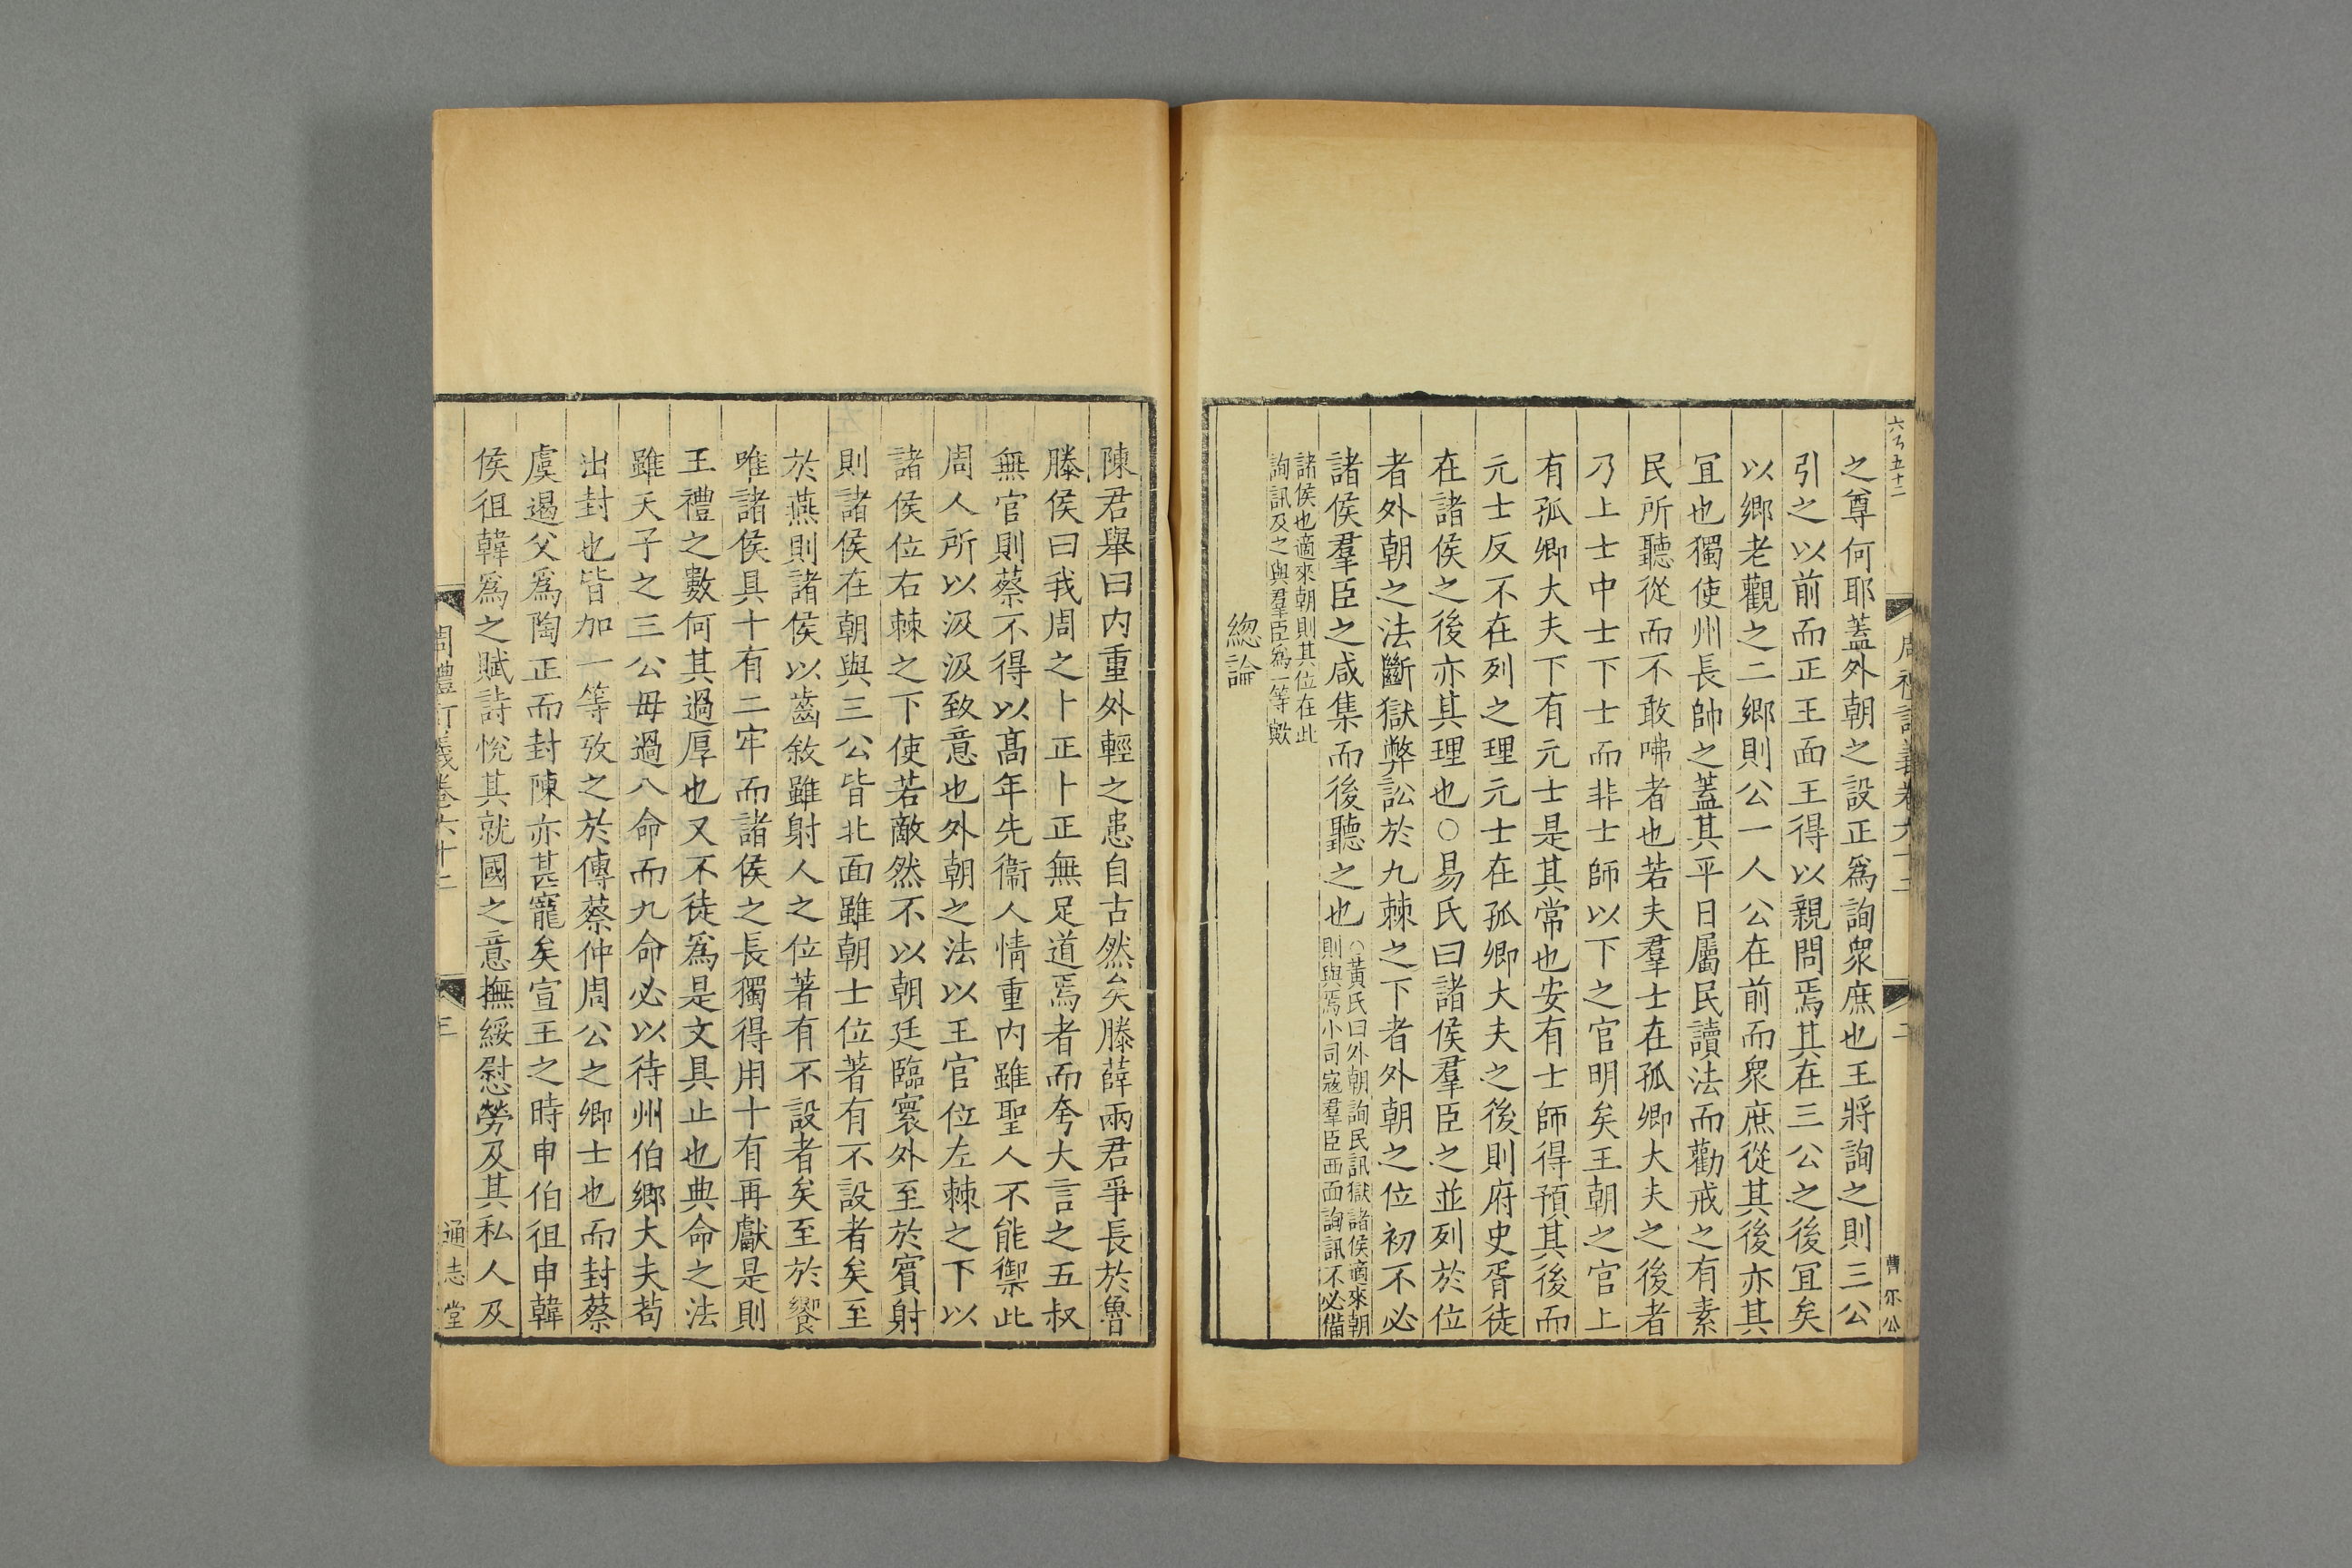 之尊何耶蓋外朝之設正爲詢衆庶也王將詢之則三公
引之以前而正王面王得以親問焉其在三公之後冝矣
以鄉老觀之二鄉則公一人公在前而衆庶從其後亦其
冝也獨使州長帥之蓋其平日屬民讀法而勸戒之有素
民所聽從而不敢咈者也若夫羣士在孤卿大夫之後者
乃上士中士下士而非士師以下之官明矣王朝之官上
有孤卿大夫下有元士是其常也安有士師得預其後而
元士反不在列之理元士在孤卿大夫之後則府史胥徒
在諸侯之後亦其理也○易氏曰諸侯羣臣之並列於位
者外朝之法斷獄弊訟於九棘之下者外朝之位初不必
諸侯羣臣之咸集而後聽之也
○黃氏曰外朝詢民訊獄諸侯適來朝
則與焉小司寇羣臣西面詢訊不必備
諸侯也適來朝則其位在此
詢訊及之與羣臣爲一等歟
緫論
周禮訂義卷六十二
二
陳君舉曰内重外輕之患自古然矣滕薛兩君爭長於魯
滕侯曰我周之卜正卜正無足道焉者而夸大言之五叔
無官則蔡不得以髙年先衞人情重内雖聖人不能禦此
周人所以汲汲致意也外朝之法以王官位左棘之下以
諸侯位右棘之下使若敵然不以朝廷臨寰外至於賓射
則諸侯在朝與三公皆北面雖朝士位著有不設者矣至
於燕則諸侯以齒敘雖射人之位著有不設者矣至於饗
唯諸侯具十有二牢而諸侯之長獨得用十有再獻是則
王禮之數何其過厚也又不徒爲是文具止也典命之法
雖天子之三公毋過八命而九命必以待州伯鄉大夫苟
出封也皆加一等攷之於傳蔡仲周公之卿士也而封蔡
虞遏父爲陶正而封陳亦甚寵矣宣王之時申伯徂申韓
侯徂韓爲之賦詩悅其就國之意撫綏慰勞及其私人及
周禮訂義卷六十二
三
通志堂